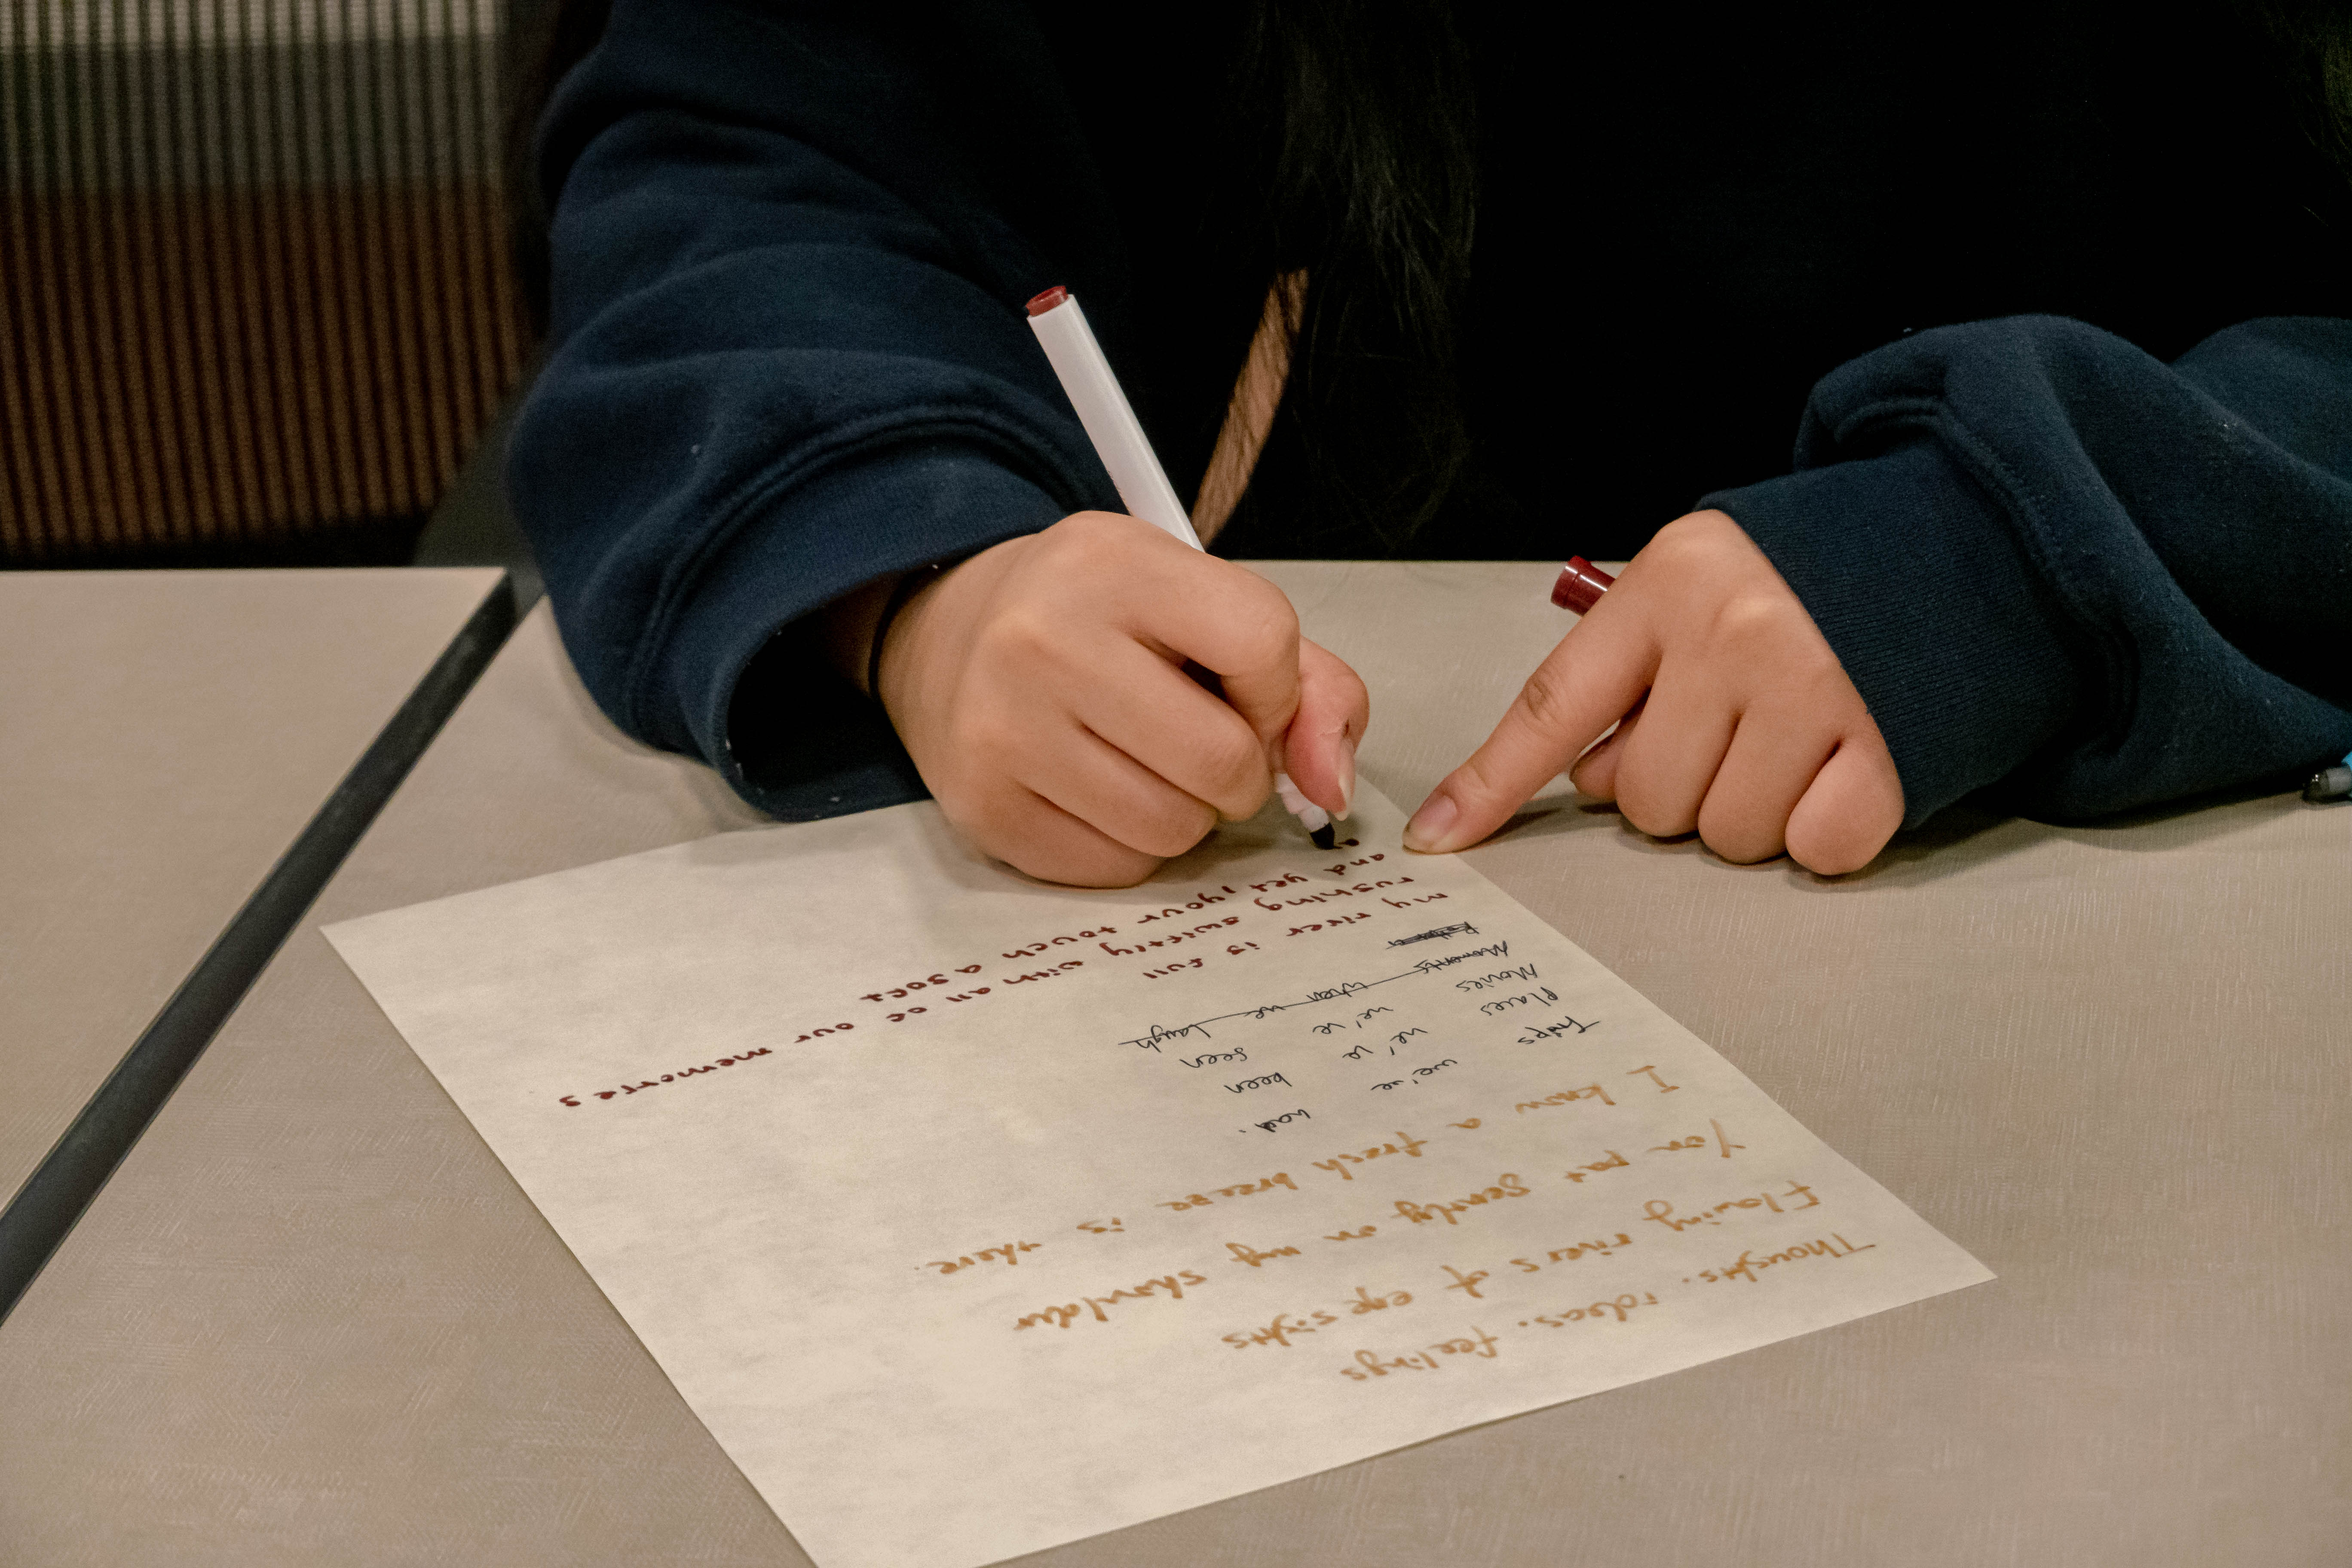 Thoughts. ideas. feelings
Flowing rivers of eye sights
You pat gently on my shoulder
I know a fresh breeze is there.
Trips we've had.
Places we've been
Movies we've seen
Moments when we laugh
my river is full
rushing swiftly with all of our memories
and yet, your touch a soft